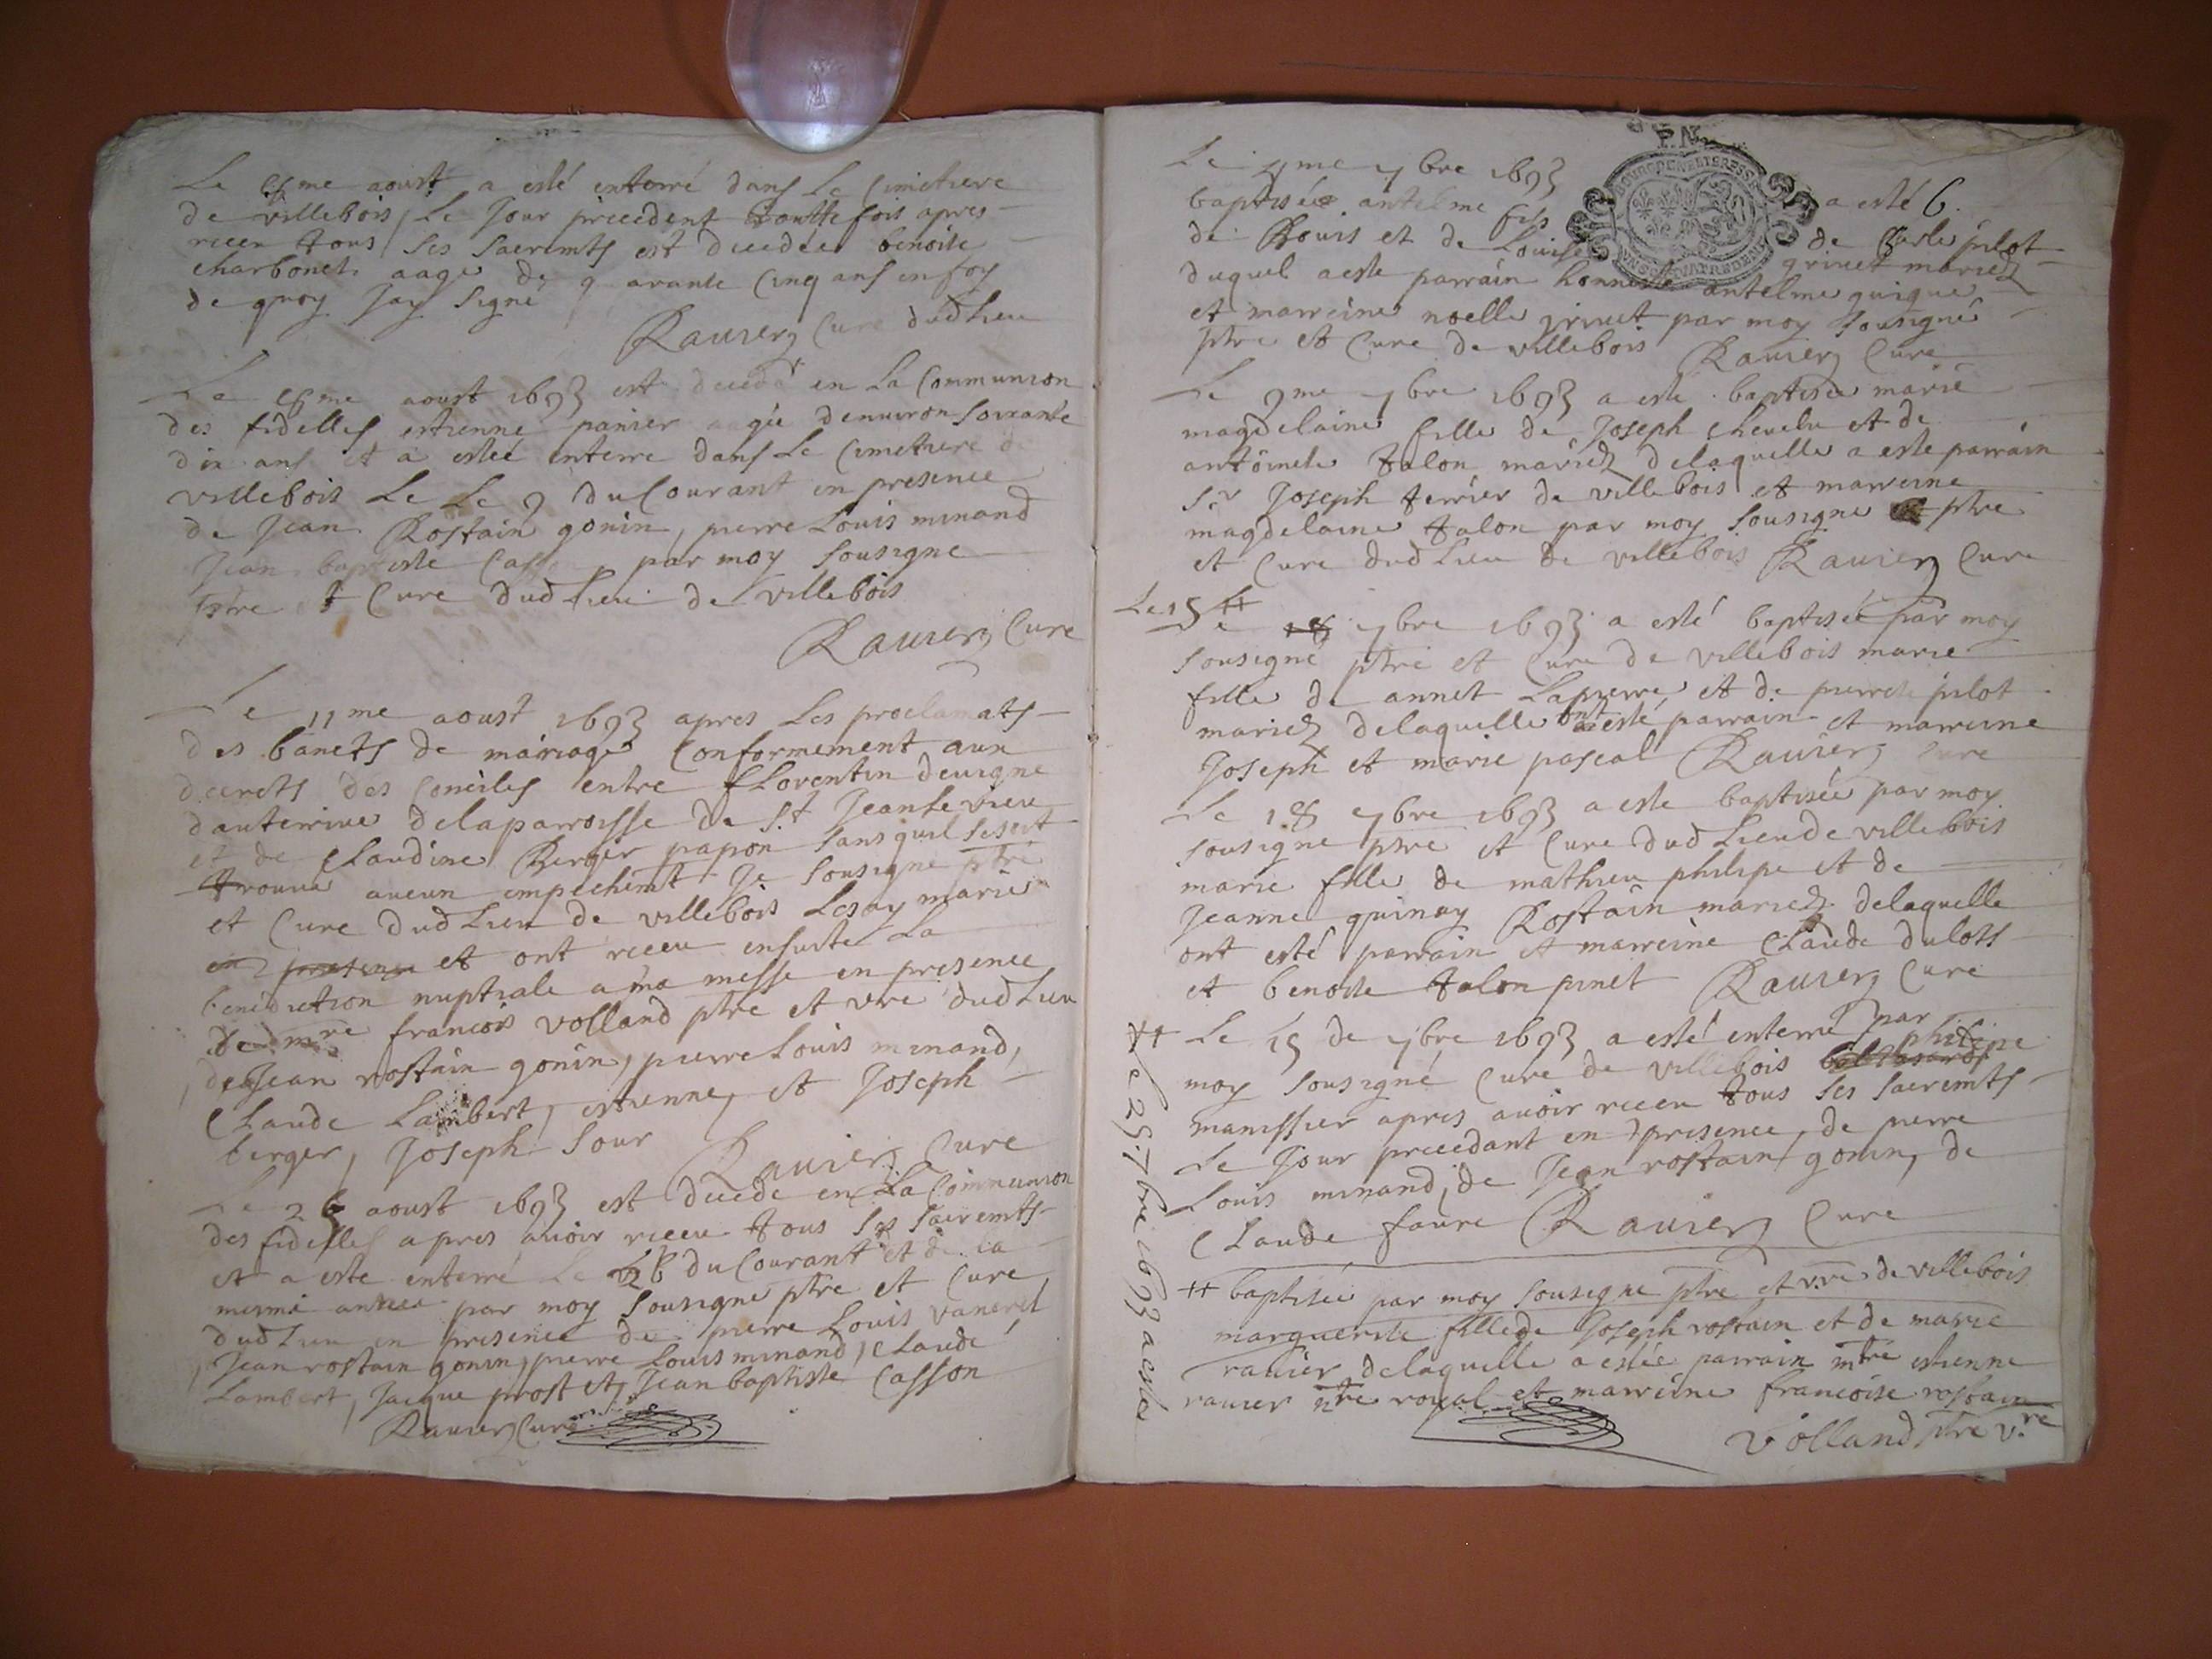 Le 8me aoust a esté enterré dans Le Cimetiere
de villebois, Le Jour precedent touttefois apres
receu tous ses sacremts est decedée benoite
charbonet aage de quarante Cinq ans en foy
de quoy Jay signé
Ravier Cure dud Lieu
Le 8me aoust 1693 est decedé en La Communion
des fidelles estienne panier aagé denviron soixante
dix ans et a estée enterré dans Le Cimetiere de
villebois Le Le 9 du Courant en presence
de Jean Rostain gonin, pierre Louis minand
Jean baptiste Casson par moy sousigne
ptre et Cure dud Lieu de villebois
Ravier Cure
Le 11me aoust 1693 apres Les proclamats
des bancts de mariage Conformement aux
decrets des Conciles entre fLorentin devigne
dauterive delaparroisse de St Jean Le vieu
et de CLaudine Berger papon sans quil se soit
trouvé aucun empechemt Je sousigne ptre
et Cure dud Lieu de villebois Lesay marie
en presence et ont receu ensuite La
benediction nuptiale a ma messe en presence
de mre francois volland ptre et vre dud Lieu
de Jean rostain gonin, pierre Louis minand,
CLaude Lambert, estienne, et Joseph
berger, Joseph sour
Ravier Cure
Le 25 aoust 1693 est decede en La Communion
des fidelles apres avoir receu tous ses sacremts
et a este enterré Le 26 du Courant et de la
mesme année par moy sousigne ptre et Cure
dud Lieu en presence de pierre Louis vanerel
Jean rostain gonin, pierre Louis minand, CLaude
Lambert, Jacque prost et Jean baptiste Casson
Ravier Cure
Le 4me 7bre 1693 a esté 6.
baptisée antelme fils de Carle pilot
de Bouis et de Louise grinet mariez
duquel a este parrain honneste antelme guigue
et marreine noelle grinet par moy sousigné
ptre et Cure de villebois Ravier Cure
Le 9me 7bre 1693 a este baptisée marie
magdelaine fille de Joseph chevelu et de
antoinete talon mariez delaquelle a este parrain
Sr Joseph terrier de villebois et marreine
magdelaine talon par moy sousigne ptre
et Cure dud Lieu de villebois Ravier Cure
Le 15 Le 18 7bre 1693 a esté baptisée par moy
sousigné ptre et Cure de villebois marie
fille de annet Lapierre et de pierrete pilot
mariez delaquelle ont esté parrain et marreine
Joseph et marie pascal Ravier Cure
Le 18 7bre 1693 a este baptisée par moy
sousigne ptre et Cure dud Lieu de villebois
marie fille de mathieu philipe et de
Jeanne quinay Rostain mariez delaquelle
ont esté parrain et marreine CLaude dulots
et benoite talon pinet Ravier Cure
++ Le 15 de 7bre 1693 a esté enterré par
moy sousigné Cure de villebois philipe
manissier apres avoir receu tous ses sacremts
Le Jour precedant en presence de pierre
Louis minand, de Jean rostain gonin, de
CLaude faure Ravier Cure
++ baptisée par moy sousigne ptre et vre de villebois
marguerite fille de Joseph rostain et de marie
ravier delaquelle a estée parrain mtre estienne
ravier ntre royal et marreine francoise rostain
volland ptre v.re
++ Le 25 7bre 1693 a esté